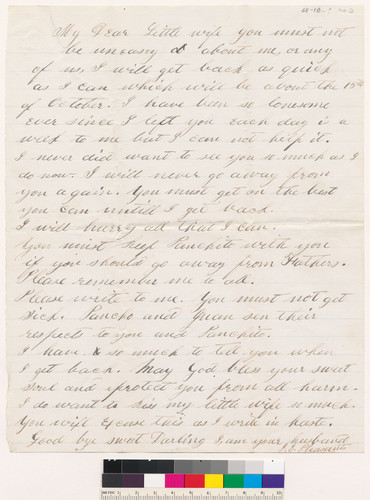 My Dear Little wife you must not
be uneasy about me, or any
of us, I will get back as quick
as I can which will be about the 15th
of October. I have been so lonesome
ever since I left you each day is a
week to me but I can not help it.
I never did want to see you so much as I
do now. I will never go away from
you again. You must get on the best
you can untill I get back.
I will hurry all that I can.
You must keep Panchito with you
if you should go away from Fathers.
Please remember me to all.
Please write to me. You must not get
sick. Pancho and Juan sen their
respects to you and Panchito.
I have so much to tel you when
I get back. May God bless your swat
Soul and protect you from all harm.
I do want to kiss my little wife so much.
You must excuse this as I write in haste.
Good bye swat Darling I am your Husband